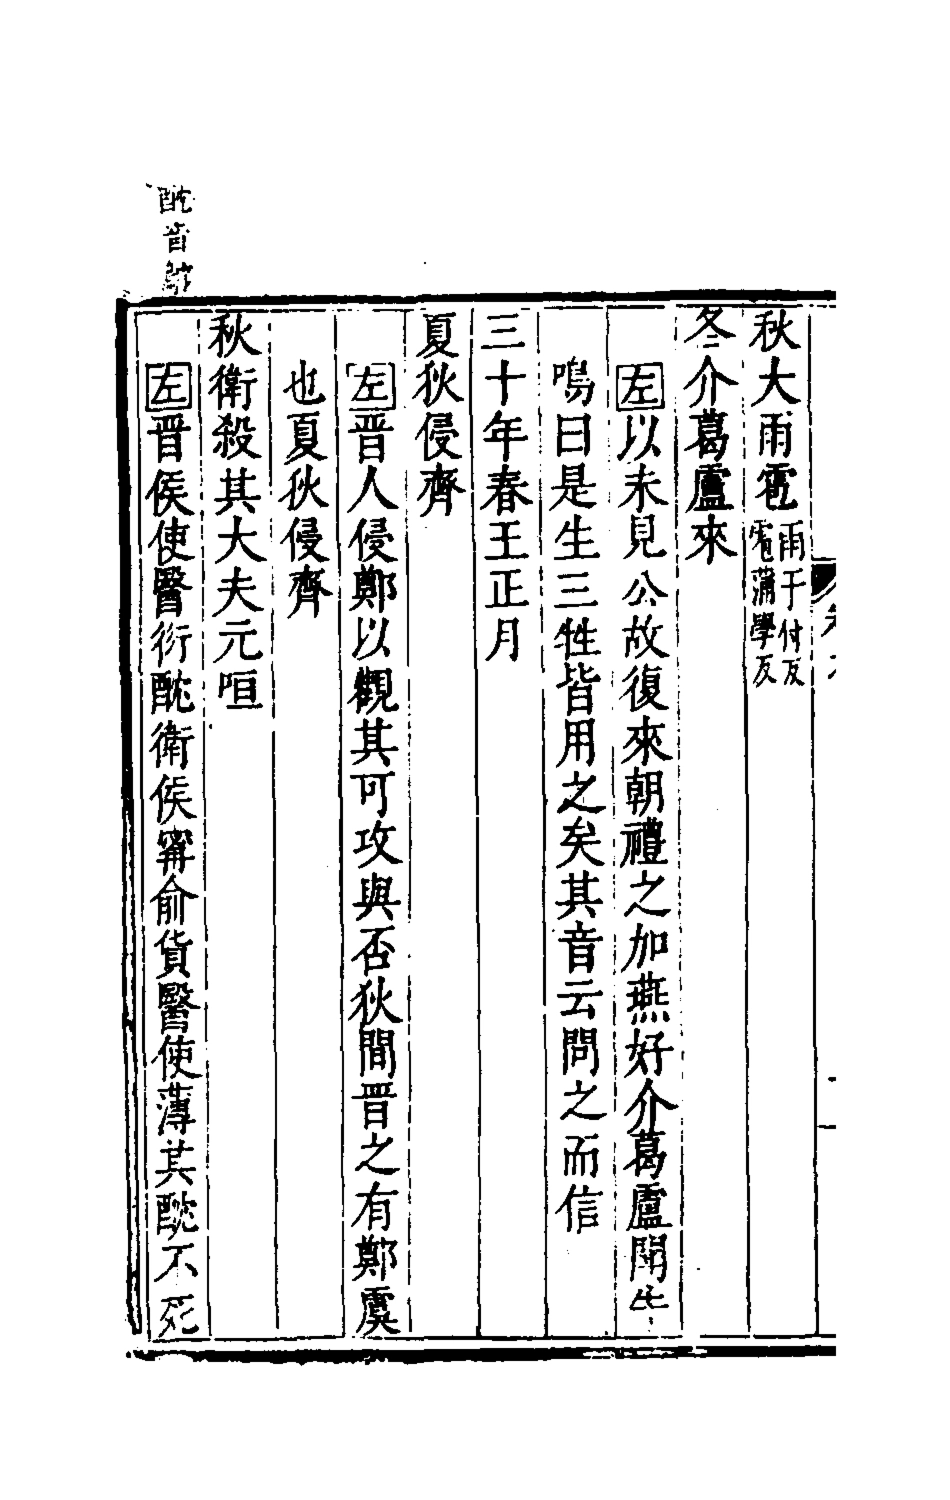 秋大雨雹雨于付反雹蒲學反
冬介葛盧來
左以未見公故復來朝禮之加燕好介葛盧聞牛
鳴曰是生三牲皆用之矣其音云問之而信
三十年春王正月
夏狄侵齊
左晋人侵鄭以觀其可攻與否狄間晋之有鄭虞
也夏狄侵齊
秋衛殺其大夫元咺
左晋侯使醫衍酖衛侯甯俞貨醫使薄其酖不死
酖音鴆